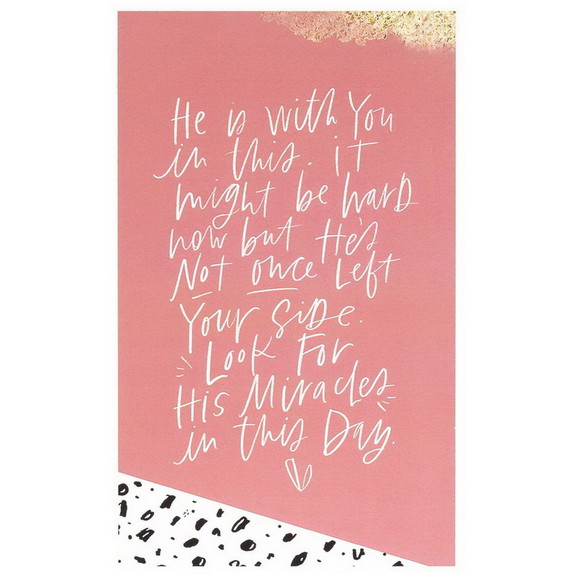 He is with You
in this. it
might be hard
now but He's
Not once Left
Your side.
Look For
His Miracles
in this Day.